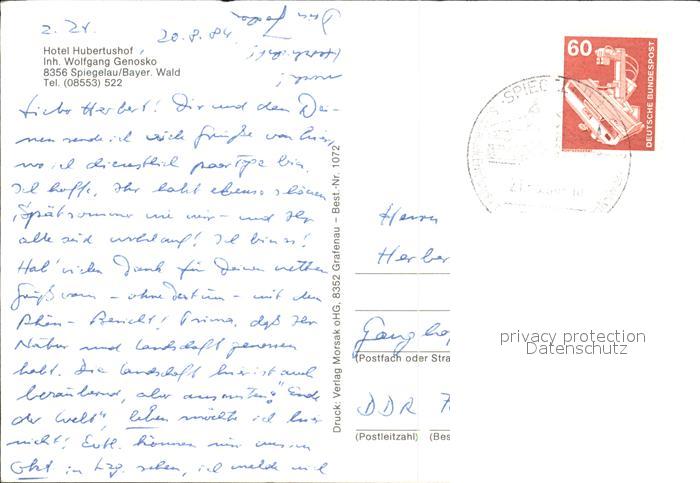 z. Zt.
20.8.84
Hotel Hubertushof
Inh. Wolfgang Genosko
8356 Spiegelau/Bayer. Wald
Tel. (08553) 522
Lieber Herbert! Dir und den Dei-
nen sende ich viele Grüße von hier,
wo ich dienstlich paar Tge bin.
Ich hoffe, Ihr habt ebenso schönen
Spätsommer wie wir – und Ihr
alle seid wohlauf! Ich bin es!
Hab' vielen Dank für Deinen netten
Gruß vom – ohne Datum – mit dem
Rhön-Bericht! Prima, daß Ihr
Natur und Landschaft genossen
habt. Die Landschaft hier ist auch
bezaubernd, aber "Ende
der Welt", leben möchte ich hier
nicht! Evtl. können wir uns im
Okt in Lzg. sehen, ich melde mich
noch!
Herzlichst!
Dein
Druck: Verlag Morsak oHG, 8352 Grafenau – Best.-Nr. 1072
60
DEUTSCHE BUNDESPOST
SPIEG
Herrn
Herber
Gangho
(Postfach oder Stra
DDR 7
(Postleitzahl) (Bes
privacy protection
Datenschutz